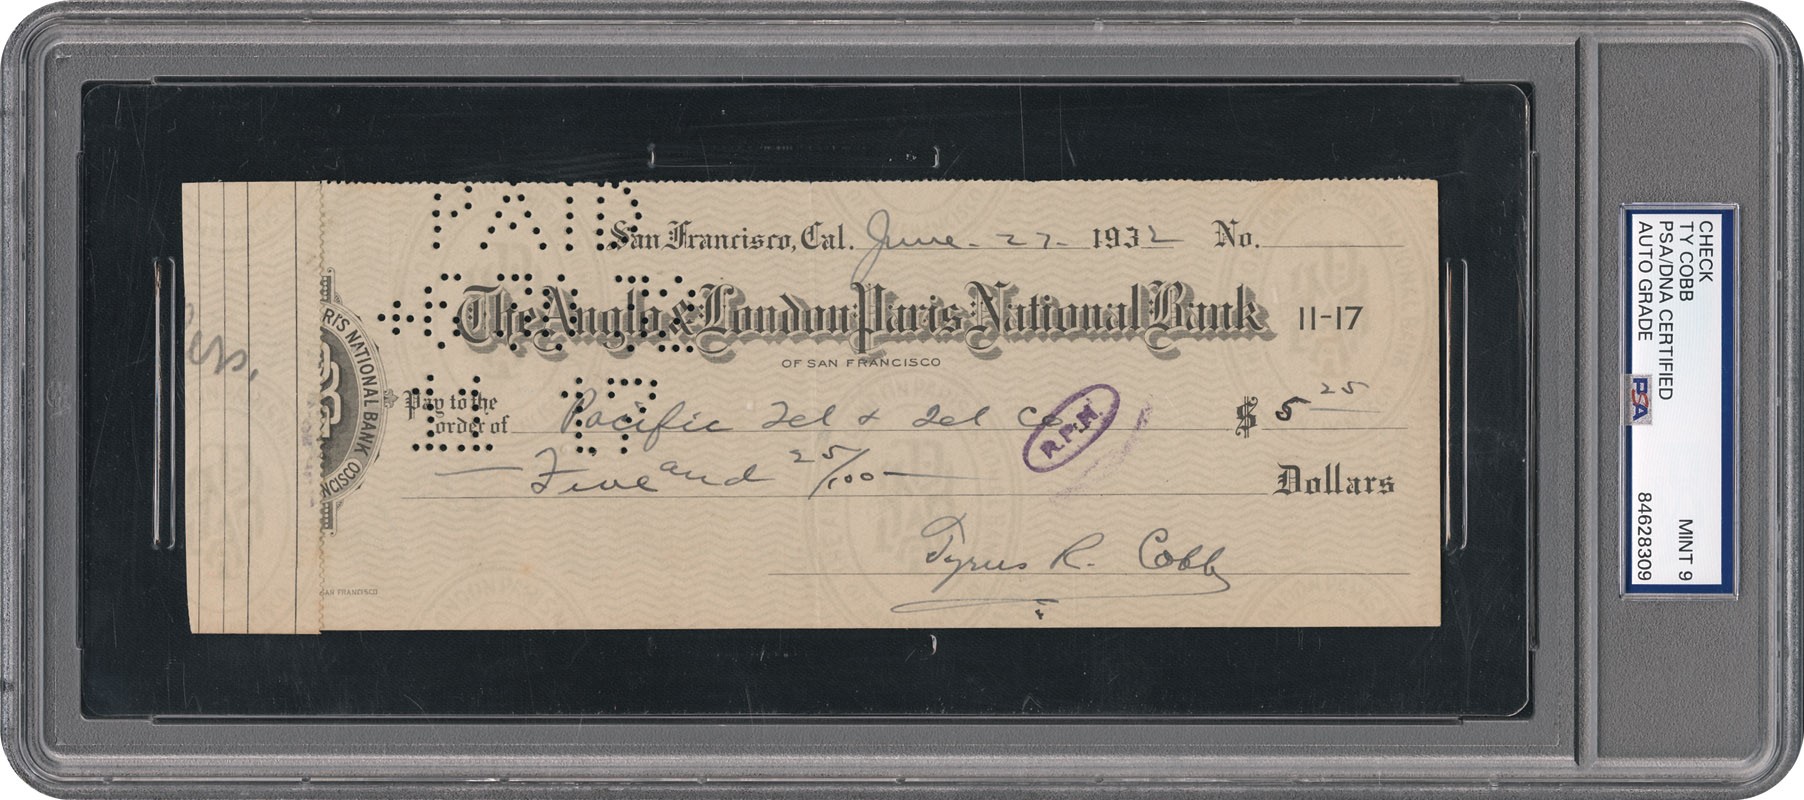 PAID
San Francisco, Cal. June - 27 - 1932 No.
The Anglo & London Paris National Bank 11-17
OF SAN FRANCISCO
RIS NATIONAL BANK
NCISCO
Pay to the order of Pacific Tel & Tel Co $ 5 25
R.P.M.
11 17
Five and 25/100 Dollars
Tyrus R. Cobb
SAN FRANCISCO
CHECK
TY COBB
PSA/DNA CERTIFIED
AUTO GRADE MINT 9
84628309
PSA